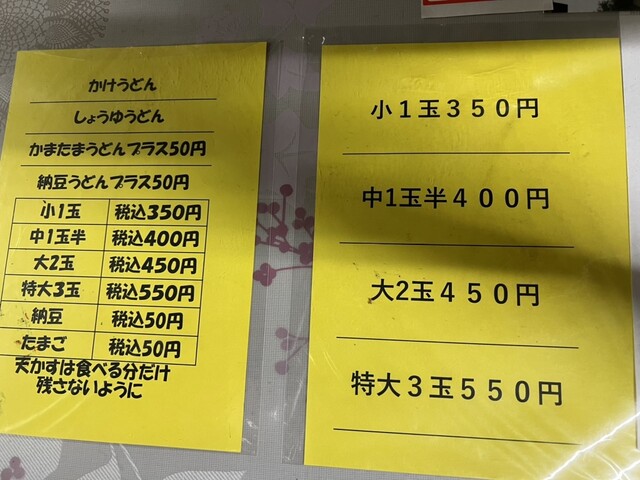 かけうどん
しょうゆうどん
かまたまうどんプラス50円
納豆うどんプラス50円
小1玉 税込350円
中1玉半 税込400円
大2玉 税込450円
特大3玉 税込550円
納豆 税込50円
たまご 税込50円
天かすは食べる分だけ
残さないように
小１玉３５０円
中1玉半４００円
大2玉４５０円
特大３玉５５０円